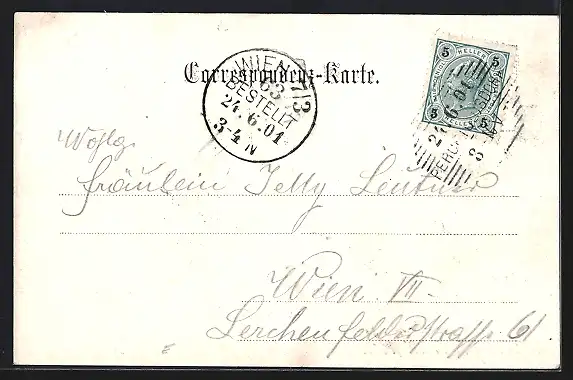 Correspondenz-Karte.
WIEN 7/3
63
BESTELLT
24.6.01
3-4 N
5 HELLER 5
5 5
Wohlg.
Fräulein Jetty Leutner
Wien VII
Lerchenfelderstrasse 61